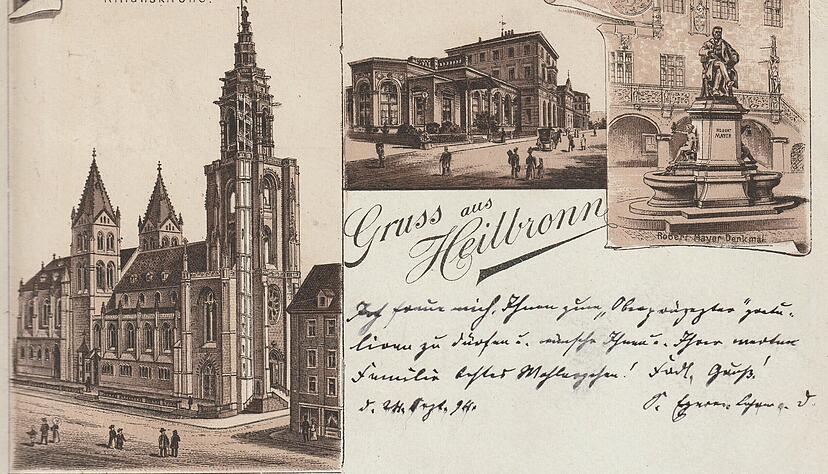 Kilianskirche.
ROBERT
MAYER
Robert Mayer Denkmal
Gruss aus
Heilbronn
Ich freue mich, Ihnen zum „Oberpräzeptor" gratu-
lieren zu dürfen u. wünsche Ihnen u. Ihrer werten
Familie echtes Wohlergehen! Frdl. Gruß!
d. 24. Sept. 94.